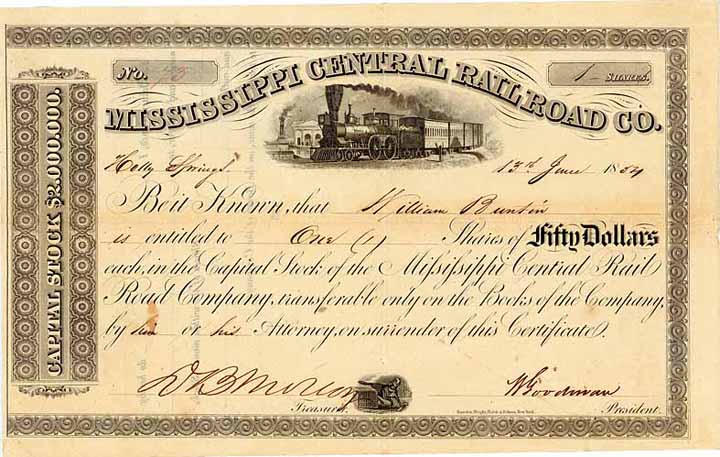 No.
1 SHARES.
MISSISSIPPI CENTRAL RAIL ROAD CO.
CAPITAL STOCK $2,000,000.
Holly Springs. 13th June 1854
Be it Known, that William Buntin
is entitled to One (1) Shares of Fifty Dollars
each, in the Capital Stock of the Mississippi Central Rail
Road Company, transferable only on the Books of the Company,
by him or his Attorney, on surrender of this Certificate.
W Goodman
Treasurer. President.